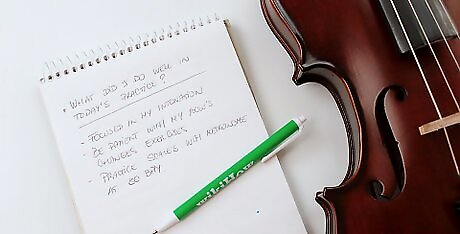 • WHAT DID I DO WELL IN
TODAY'S PRACTICE?
- FOCUSED IN MY INTONATION
- BE PATIENT WITH MY BOW'S
CHANGES EXERCISES
- PRACTICE SCALES WITH METRONOME
AT 80 BPM
wikiHow